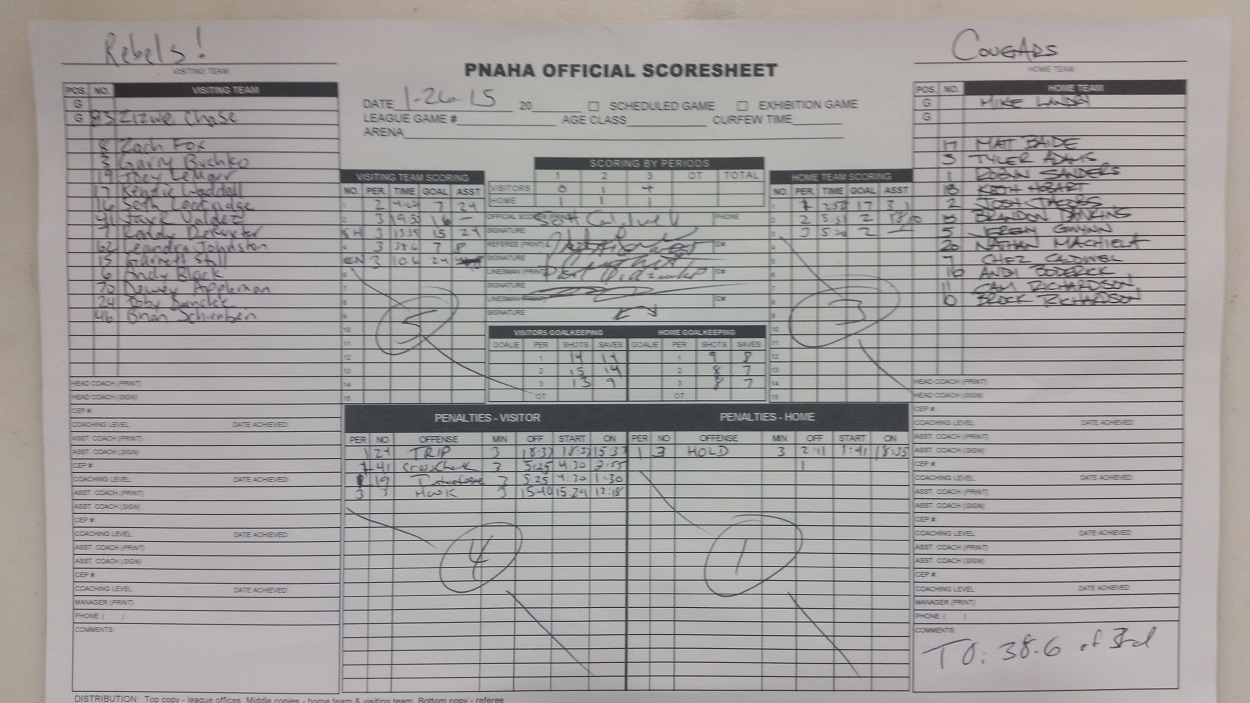 Rebels!
VISITING TEAM
COUGARS
HOME TEAM
PNAHA OFFICIAL SCORESHEET
DATE 1-26-15 20 SCHEDULED GAME EXHIBITION GAME
LEAGUE GAME # AGE CLASS CURFEW TIME
ARENA
POS. NO. VISITING TEAM
G
G Chase
8 Zach Fox
3 Garry Buchko
19 Joey
17
16 Seth
41 Jake Valdez
7
62 Leandra Johnsten
15 Garrett Still
6 Andy Black
70 Dewey Appleman
24 Toby
46 Brian
SCORING BY PERIODS
1 2 3 OT TOTAL
VISITORS 0 1 4
HOME 1 1 1
VISITING TEAM SCORING
NO. PER. TIME GOAL ASST
1 2 7 24
2 3 19:53 16 –
SH 3 15 24
4 3 7 8
EN 3 24
5
OFFICIAL SCORER Scott Caldwell PHONE
SIGNATURE
REFEREE (PRINT) C#
SIGNATURE
LINESMAN (PRINT) C#
SIGNATURE
LINESMAN (PRINT) C#
SIGNATURE
HOME TEAM SCORING
NO. PER. TIME GOAL ASST
1 17 3 1
2 2 5:31 2
3 2
3
VISITORS GOALKEEPING
GOALIE PER SHOTS SAVES
1 14
2 15 14
3 13 9
OT
HOME GOALKEEPING
GOALIE PER SHOTS SAVES
1 9 8
2 8 7
3 8 7
OT
POS. NO. HOME TEAM
G MIKE LANDRY
G
17 MATT BAIDE
3 TYLER ADAMS
1 ROBIN SANDERS
18 KEITH HOBART
2 JOSH JACOBS
BRANDON DAWKINS
5 JEREMY GWYNN
20 NATHAN MACHIELA
7 CHEZ CALDWELL
16 ANDY BODERICK
11 CAM RICHARDSON
0 BROCK RICHARDSON
PENALTIES - VISITOR
PER NO OFFENSE MIN OFF START ON
1 24 TRIP 3 18:37 18:37 15:37
41 Crosscheck 3 5:25 4:30
19 3 5:25 4:30 1:30
3 3 HOOK 3 15:40 15:24
4
PENALTIES - HOME
PER NO OFFENSE MIN OFF START ON
1 3 HOLD 3 2:11 1:41 18:35
1
HEAD COACH (PRINT)
HEAD COACH (SIGN)
CEP #
COACHING LEVEL DATE ACHIEVED:
ASST. COACH (PRINT)
ASST. COACH (SIGN)
CEP #
COACHING LEVEL: DATE ACHIEVED:
ASST. COACH (PRINT)
ASST. COACH (SIGN)
CEP #
COACHING LEVEL: DATE ACHIEVED:
ASST. COACH (PRINT)
ASST. COACH (SIGN)
CEP #
COACHING LEVEL: DATE ACHIEVED:
MANAGER (PRINT)
PHONE ( )
COMMENTS:
HEAD COACH (PRINT)
HEAD COACH (SIGN)
CEP #
COACHING LEVEL DATE ACHIEVED:
ASST. COACH (PRINT)
ASST. COACH (SIGN)
CEP #
COACHING LEVEL: DATE ACHIEVED:
ASST. COACH (PRINT)
ASST. COACH (SIGN)
CEP #
COACHING LEVEL: DATE ACHIEVED:
ASST. COACH (PRINT)
ASST. COACH (SIGN)
CEP #
COACHING LEVEL: DATE ACHIEVED:
MANAGER (PRINT)
PHONE ( )
COMMENTS:
TO: 38.6 of 3rd
DISTRIBUTION: Top copy - league offices, Middle copies - home team & visiting team, Bottom copy - referee